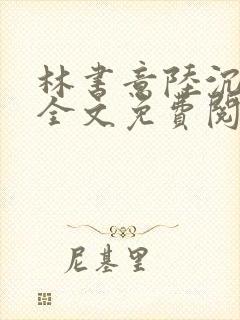 林書意陸沉
全文免費閱
尼基里